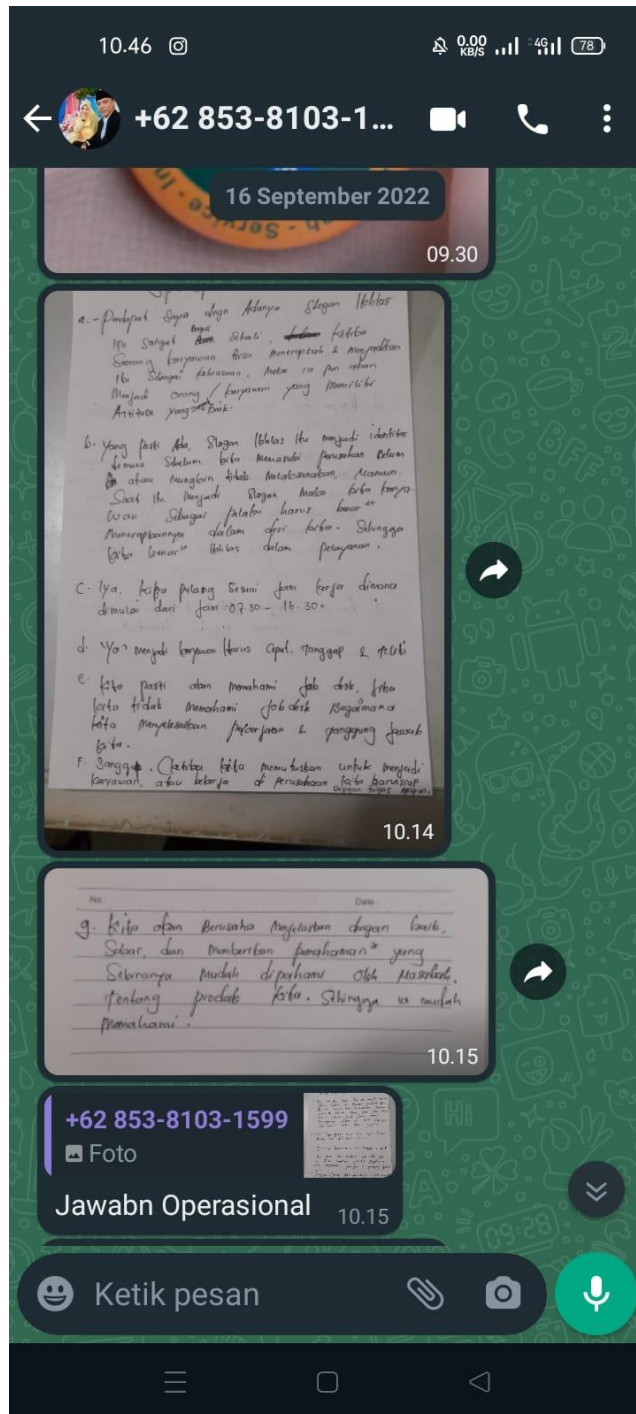 10.46
0.00 KB/S 4G 78
+62 853-8103-1...
16 September 2022
Service - In
09.30
a. - Pendapat Saya dngn Adanya Slogan Ikhlas
itu Sangat Bagus Sekali, Ketika
Seorang karyawan Bisa menerapkan & menjadikan
itu Sebagai kebiasaan, Maka ia pun akan
Menjadi orang / karyawan yang memiliki
Attitude yang Baik.
b. Yang pasti Ada, Slogan Ikhlas Itu menjadi identitas
dimana Sebelum kita Memasuki perusahan Belum
atau mungkin tidak Melaksanakan, Namun
Saat itu menjadi Slogan maka kita karya-
wan Sebagai pelaku harus benar"
Menerapkannya dalam diri kita. Sehingga
kita benar" Ikhlas dalam pelayanan.
C. Iya, kita pulang Sesuai jam kerja dimana
dimulai dari jam 07.30 - 16.30.
d. "Ya" menjadi karyawan Harus Cpat, tanggap & teliti
e. kita pasti akan memahami job desk, jika
kita tidak memahami job desk Bagaimana
kita Menyelesaikan pekerjaan & tanggung jawab
kita.
F. Sanggup. Ketika kita memutuskan untuk menjadi
karyawan, atau bekerja di perusahaan kita harus siap
dengan tugas apapun.
10.14
No.: Date:
g. Kita akan Berusaha Menjelaskan dengan baik,
Sabar, dan memberikan pemahaman" yang
Sekiranya Mudah dipahami Oleh Nasabah,
tentang produk kita. Sehingga ia mudah
Memahami.
10.15
+62 853-8103-1599
Foto
Jawabn Operasional 10.15
Ketik pesan